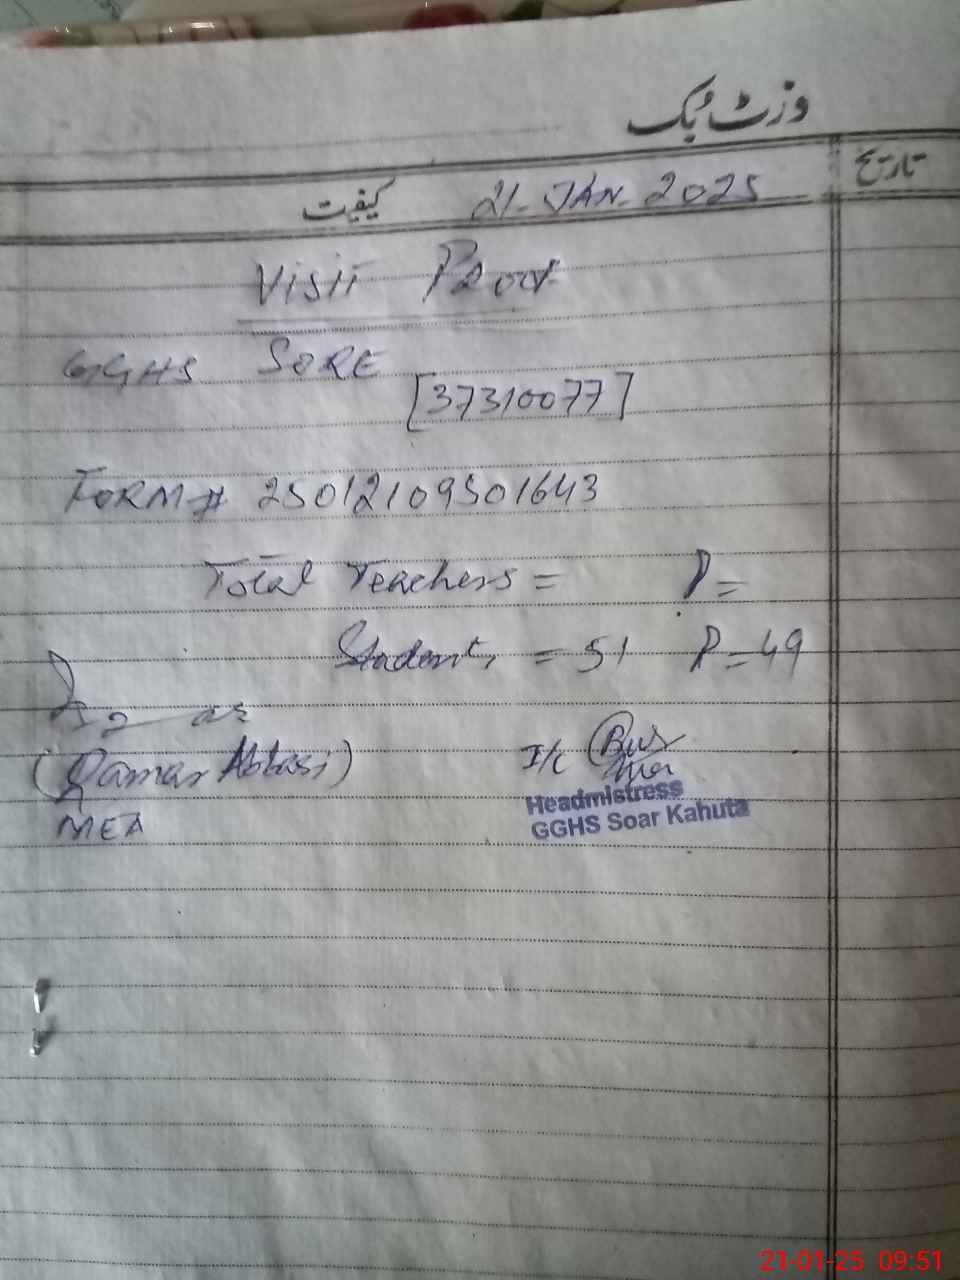 وزٹ بُک
تاریخ
کیفیت 21-JAN-2025
Visit Proof
GGHS SORE
[37310077]
FORM# 25012109501643
Total Teachers = P=
Students = 51 P=49
(Qamar Abbasi)
MEA
I/C
Headmistress
GGHS Soar Kahuta
21-01-25 09:51